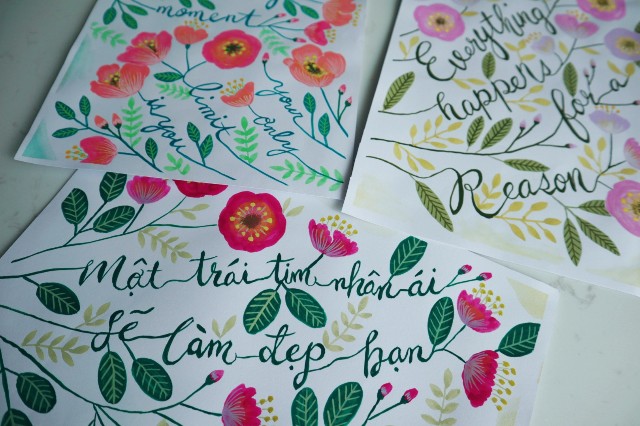 moment
your
limit
only
is you
Everything
happens
for a
Reason
Một trái tim nhân ái
sẽ làm đẹp bạn